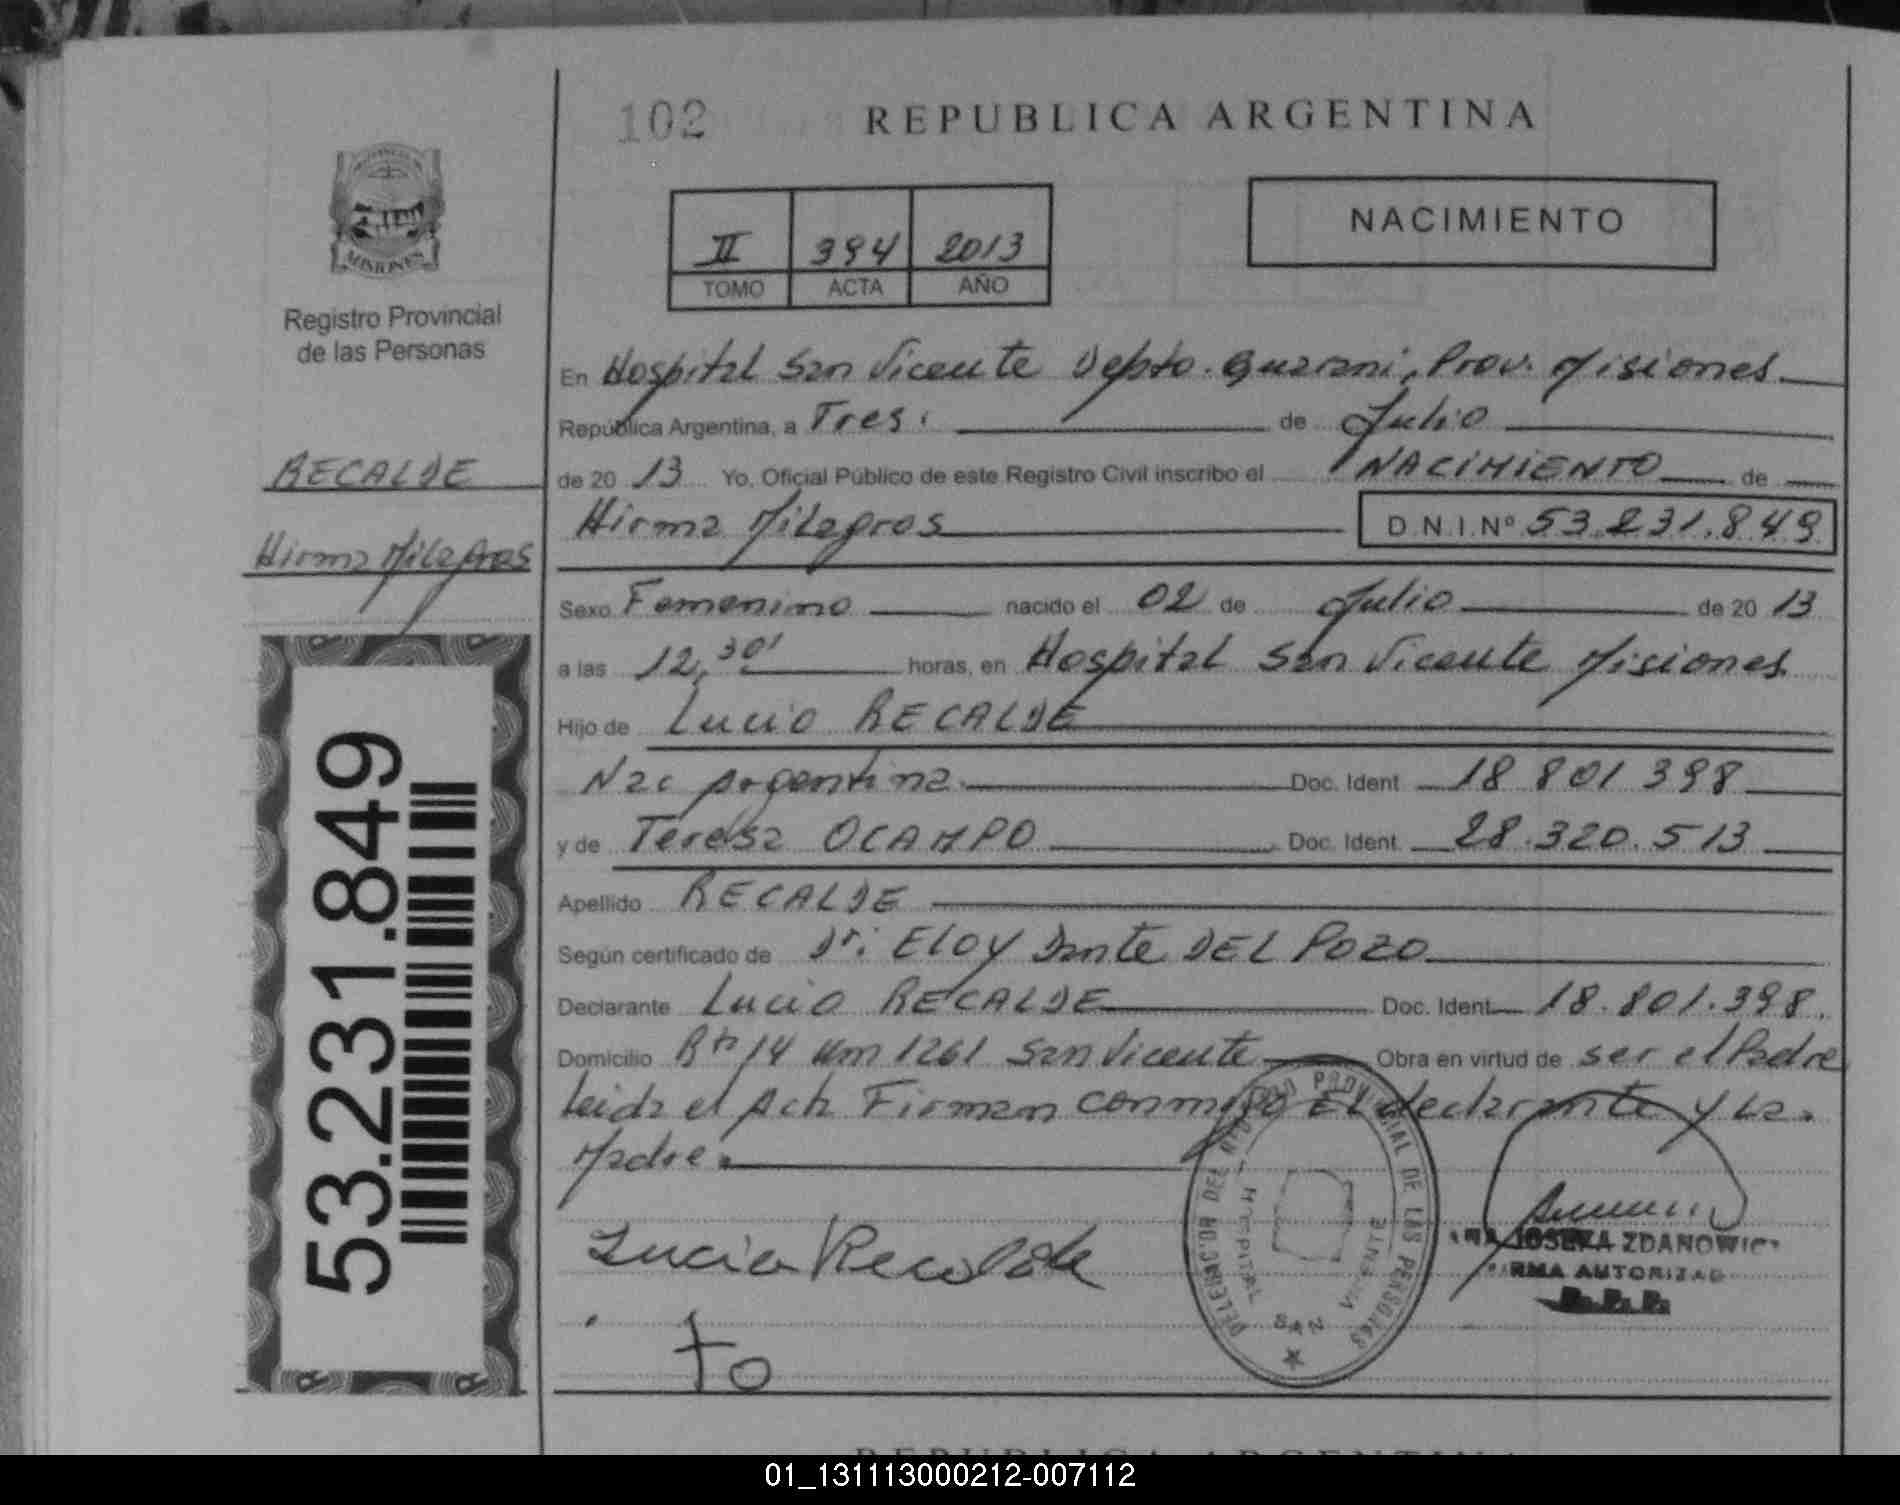 102 REPUBLICA ARGENTINA
NACIMIENTO
II 394 2013
TOMO ACTA AÑO
MISIONES
Registro Provincial
de las Personas
RECALDE
Hirma Milagros
53.231.849
En Hospital San Vicente Depto. Guarani, Prov. Misiones
República Argentina, a Tres. de Julio
de 20 13 Yo, Oficial Público de este Registro Civil inscribo el NACIMIENTO de
Hirma Milagros D.N.I.Nº 53.231.849
Sexo Femenino nacido el 02 de Julio de 20 13
a las 12,30' horas, en Hospital San Vicente Misiones
Hijo de Lucio RECALDE
Nac Argentina Doc. Ident 18 801 398
y de Teresa OCAMPO Doc. Ident. 28.320.513
Apellido RECALDE
Según certificado de Dr. ELOY Dante DEL POZO
Declarante Lucio RECALDE Doc. Ident 18.801.398.
Domicilio Rta 14 Km 1261 San Vicente Obra en virtud de ser el Padre
Leida el Acta Firman conmigo El declarante y La
Madre.
PROVINCIAL DE LAS PERSONAS
HOSPITAL SAN VICENTE
Lucio Recalde
JOSEFA ZDANOWICZ
FIRMA AUTORIZAD
R.P.P.
REPUBLICA ARGENTINA
01_131113000212-007112